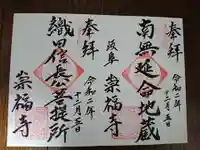 奉拝
南無延命地蔵
令和二年
十二月五日
岐阜
崇福寺
奉拝
織田信長公菩提所
令和二年
十二月五日
崇福寺